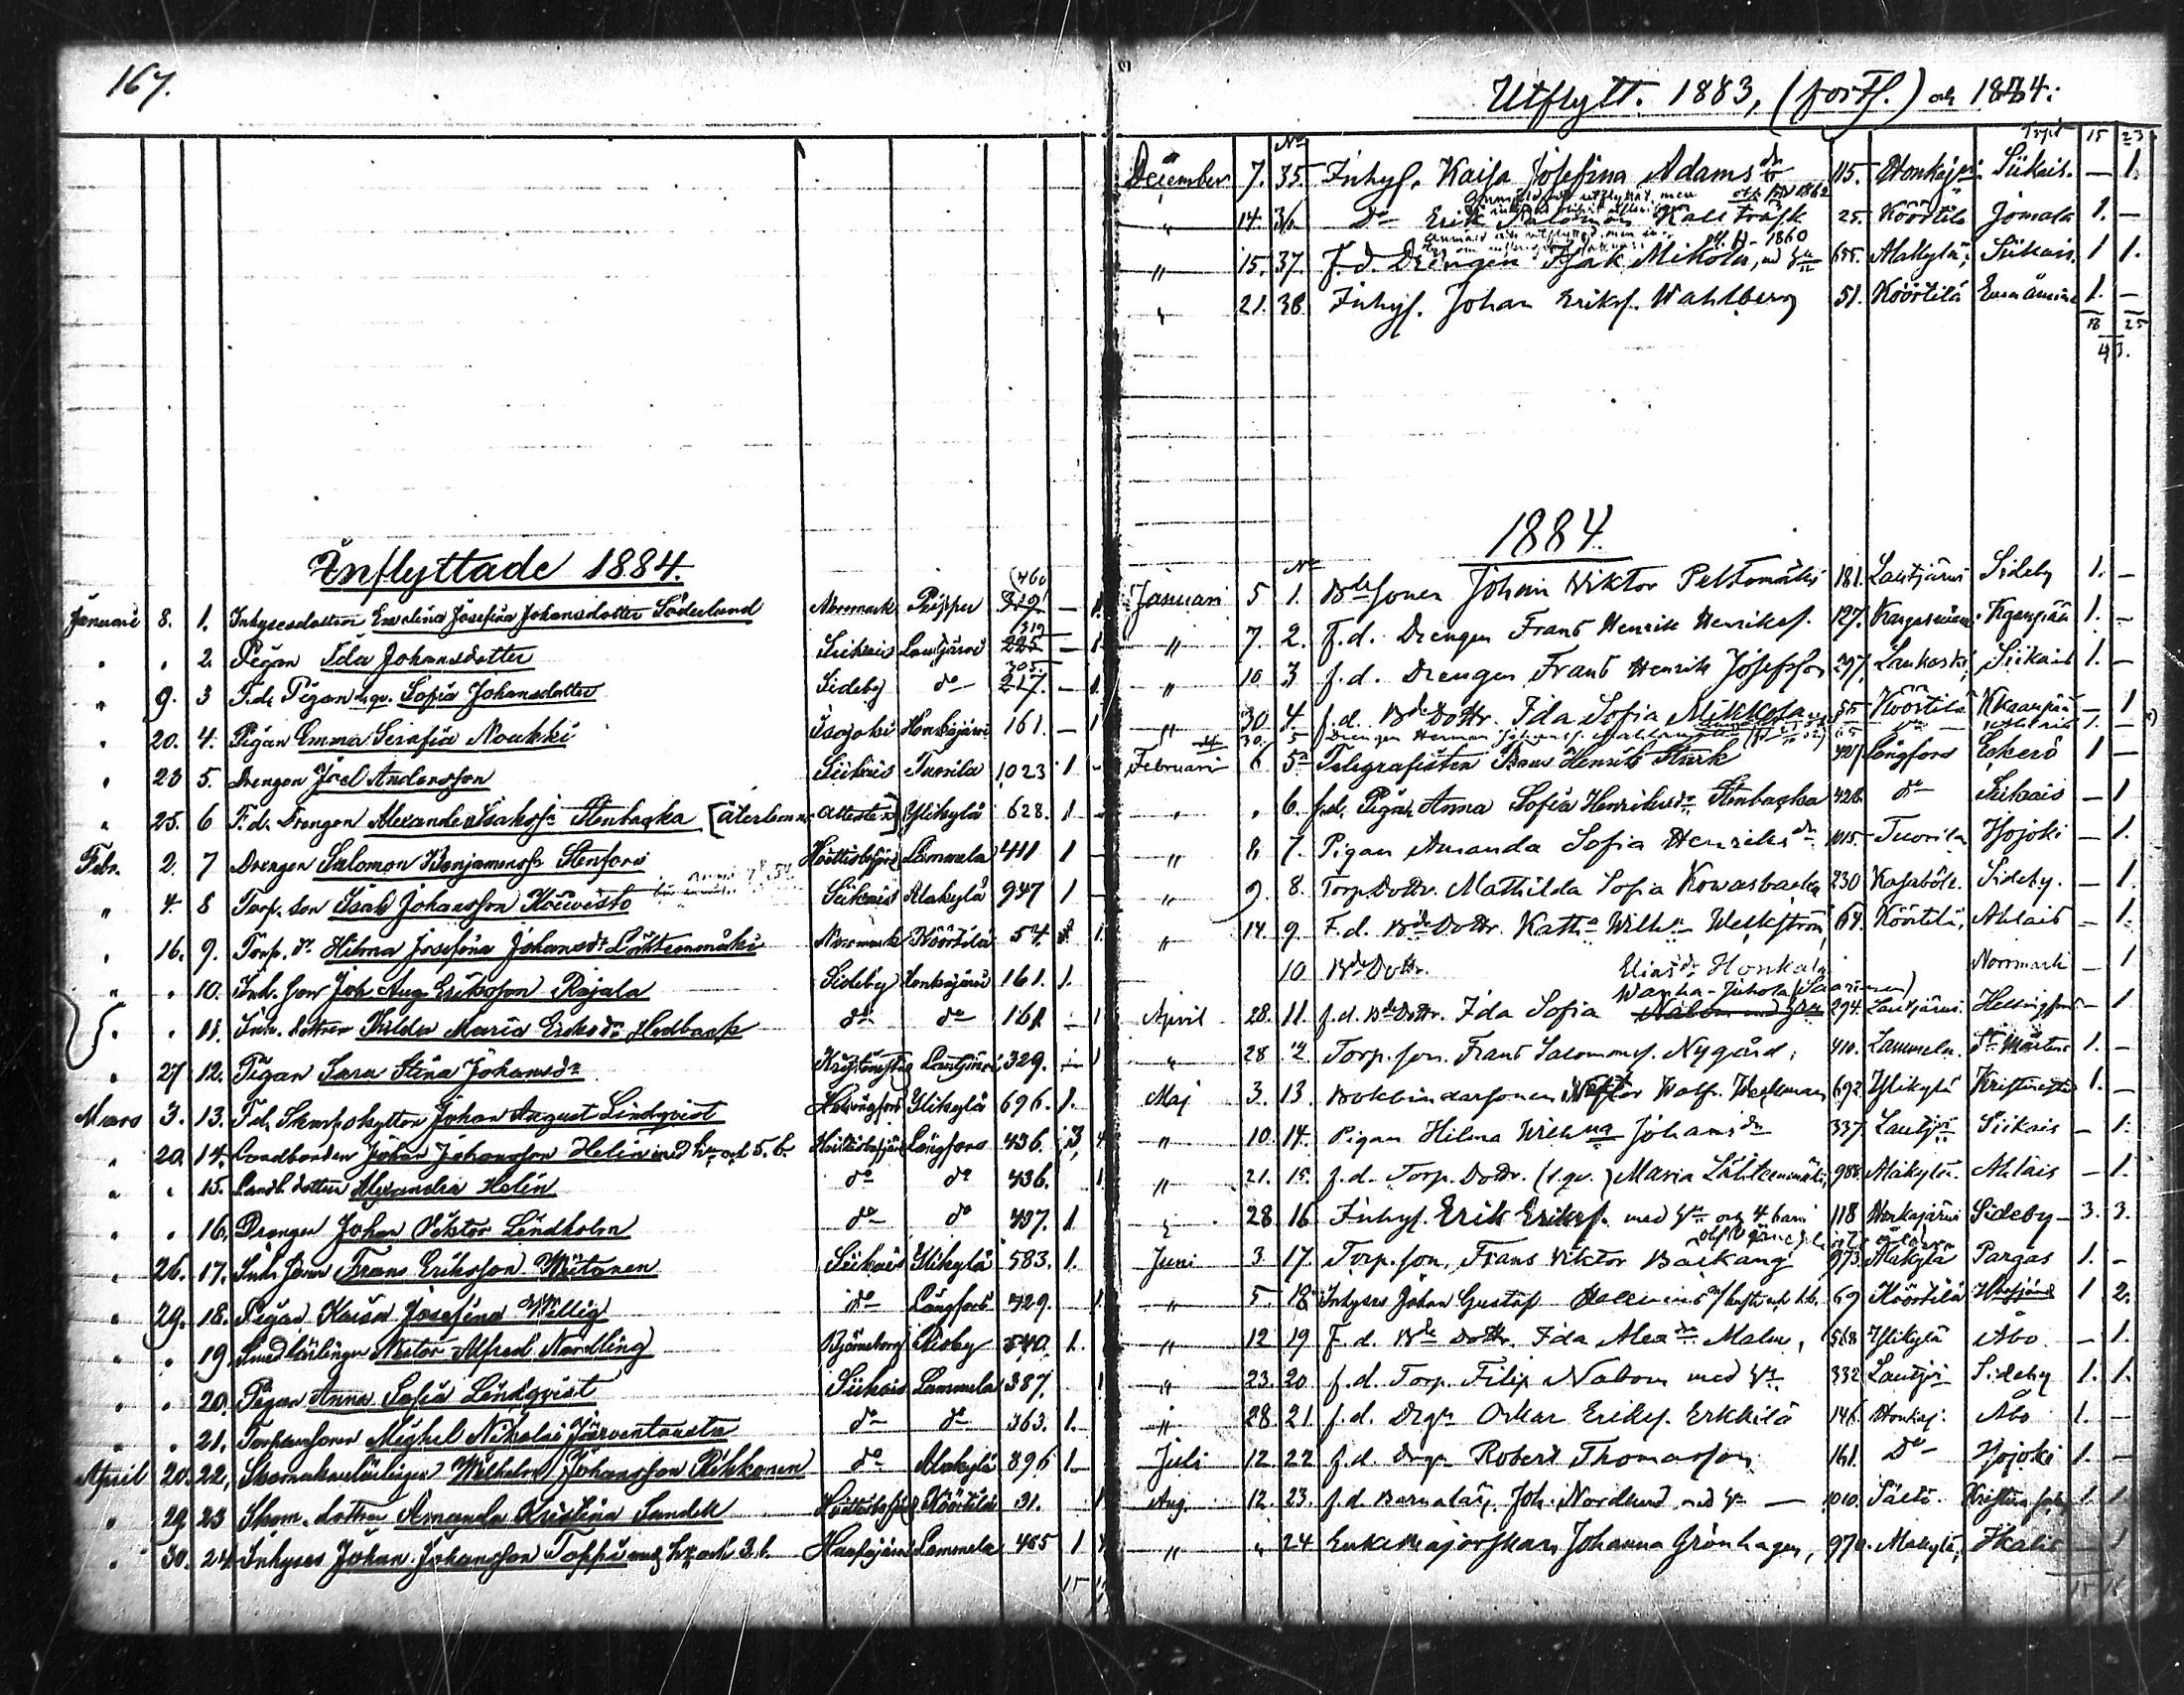 167.
Inflyttade 1884.
(460
Januari 8. 1. Inhysesdottren Evelina Josefina Johansdotter Söderlund Norrmark Peippu 319. — 1.
312
" " 2. Pigan Ida Johansdotter Siikais Lautjärvi 225 — 1
305.
" 9. 3 F.d. Pigan s.qv. Sofia Johansdotter Sideby do 217. — 1.
" 20. 4. Pigan Emma Serafia Noukki Isojoki Honkajärvi 161. — 1
" 23 5. Drengen Joel Andersson Siikais Tuorila 1023 1 -
" 25. 6 F.d. Drengen Alexander Isaksf. Stenbacka [Återlemn. attesten] Ylikylä 628. 1 -
Febr. 2. 7 Drengen Salomon Benjamensf. Stenfors Lammela 411 1 -
" 4. 8 Torp. son Isak Johansson Koivisto Siikais Alakylä 947 1 -
" 16. 9. Torp. dr Hilma Josefina Johansdr Lähteenmäki Norrmark Köörtilä 54. 1.
" " 10. Inh. son Joh. Aug. Eriksson Rajala Sideby Honkajärvi 161. 1.
" " 11. Inh. dottren Hilda Maria Eriksdr Hedback do do 161 — 1
" 27 12. Pigan Sara Stina Johansdr Lautjärvi 329. — 1
Mars 3. 13. F.d. Skarpskytten Johan August Lindqvist Helsingfors Ylikylä 696. 1.
" 20. 14. Landbonden Johan Johansson Helin med h. och 5. b. Långfors 436. 3, 4
" " 15. Landb. dottren Alexandra Helin do do 436. 1.
" " 16. Drengen Johan Viktor Lindholm do do 437. 1
" 26. 17. Inh. sonen Frans Eriksson Wiitanen Siikais Ylikylä 583. 1.
" 29. 18. Pigan Kaisa Josefina Willig do Långfors 429. 1
" " 19 Smedlärlingen Nestor Alfred Nordling Björneborg 540. 1.
" " 20. Pigan Anna Sofia Lindqvist Siikais Lammela 387. 1
" " 21. Torparesonen Mighel Nikolai Järventausta do do 363. 1.
April 20. 22. Skomakarelärlingen Wilhelm Johansson Rikkonen do Alakylä 896 1. -
" 29 23 Skom. dottren Amanda Kristina Sandell Köörtilä 31. 1
" 30. 24. Inhyses Johan Johansson Toppi med h. och 3. b. Lammela 465 1 4
15
Utflytt. 1883, (forts.) och 1884.
No 15 23
December 7. 35. Inhys. Kaisa Josefina Adamsdr 115. Honkajärvi Siikais. — 1.
" 14. 36. Do Erik Kallträsk 25. Köörtilä Jomala 1. —
" 15. 37. f.d. Drengen Isak Mikola, 655. Alakylä, Siikais. 1 1.
" 21. 38. Inhys. Johan Eriksf. Wahlberg 51. Köörtilä 1. —
18 25
43.
1884
No
Januari 5 1. Bdesonen Johan Viktor Peltomäki 181. Lautjärvi Sideby 1. —
" 7. 2. f.d. Drengen Frans Henrik Henriksf. 127. 1. —
" 10. 3 f.d. Drengen Frans Henrik Josefsson 297. Siikais 1. —
" 30. 4. f.d. Bde Dottr. Ida Sofia Mikkola 55 Köörtilä — 1
30. 5 Drengen Herman 1. —
Februari 6 5a Telegrafisten Henrik Stark 421 Långfors Eckerö 1 —
" " 6. f.d. Pigan Anna Sofia Henriksdr Stenbacka 428. do Siikais — 1
" 8. 7. Pigan Amanda Sofia Henriksdr 1015. Tuorila Isojoki — 1.
" 9. 8. Torp. Dottr. Mathilda Sofia Kowasbacka 230 Kasaböle. Sideby. — 1.
" 14. 9. F.d. Bde Dottr. Wilh. 64. Köörtilä, Ahlais — 1.
10 Bde Dottr. Eliasdr Honkala Norrmark — 1
Wanha-Juhola (Saarinen)
April 28. 11. f.d. Bde Dottr. Ida Sofia 294. Lautjärvi. Helsingfors — 1
" 28 12 Torp. son. Frans Salomonsf. Nygård, 410. Lammela. St Mårtens 1. —
Maj 3. 13. Bokbindarsonen Wolfr. 692 Ylikylä 1. —
" 10. 14. Pigan Hilma Wilhna Johansdr 337 Lautj. Siikais — 1.
" 21. 15. f.d. Torp. Dottr. (s.qv.) Maria Lähteenmäki, 988. Alakylä. Ahlais — 1.
" 28 16 Inhys. Erik Eriksf. med h. och 4 barn 118 Honkajärvi Sideby — 3. 3.
Juni 3. 17. Torp. son, Frans Viktor Backäng 973. Alakylä Pargas 1. —
" 5. 18 Inhyses Johan Gustaf 69 Köörtilä 1 2.
" 12 19 F.d. Bde Dottr. Ida Alexdra Malm, 568 Ylikylä Åbo — 1.
" 23. 20 f.d. Torp. Filip Nabom med h. 332 Lautj. Sideby 1. 1.
" 28 21 f.d. Drgn Oskar Eriksf. Erkkilä 146. Honkaj. Åbo 1. —
Juli 12 22 f.d. Drgn Robert Thomasson 161. Do Isojoki 1. —
Aug. 12. 23. f.d. Joh. Nordlund med h. — 1010. 1. 1
" " 24 Enkemajorskan Johanna Grönhagen, 970. Alakylä, Ikalis — 1
15